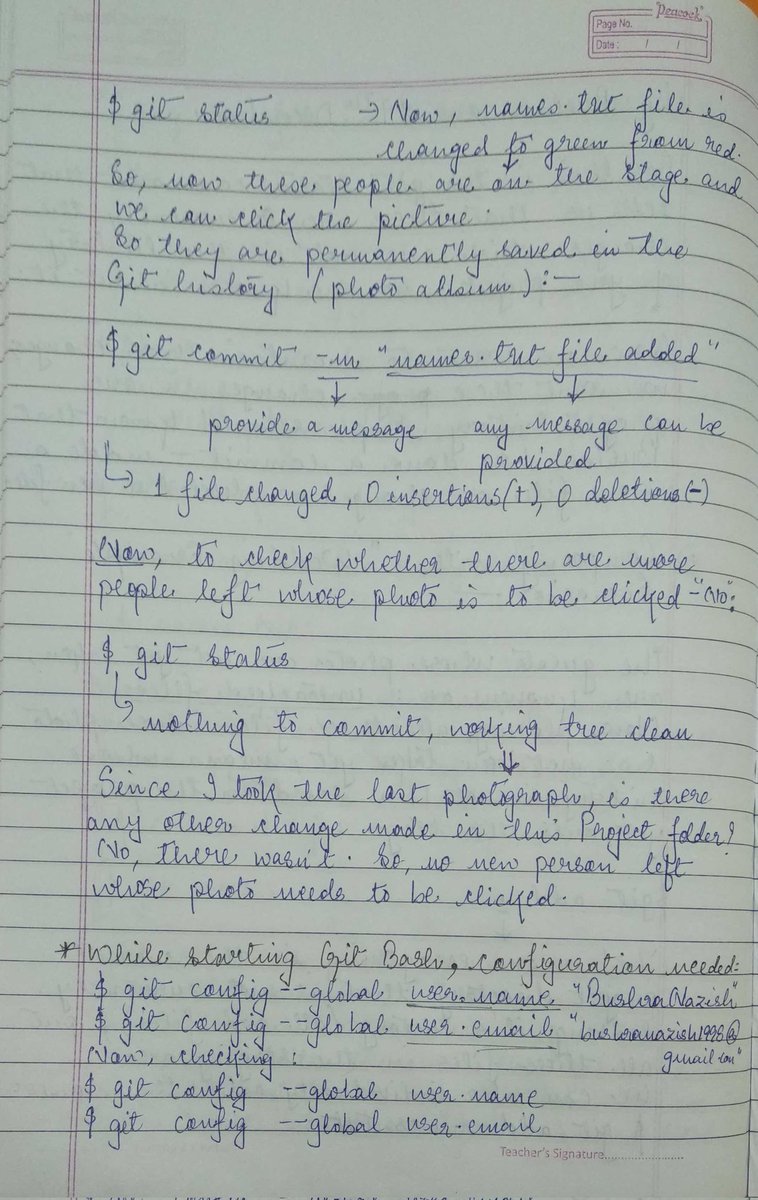 Peacock
Page No.
Date : / /
$ git status → Now, names.txt file is
changed to green from red.
So, now these people are on the stage and
we can click the picture.
So they are permanently saved in the
Git history (photo album) :-
$ git commit -m "names.txt file added"
provide a message any message can be
provided
1 file changed, 0 insertions(+), 0 deletions(-)
Now, to check whether there are more
people left whose photo is to be clicked - "No":
$ git status
nothing to commit, working tree clean
Since I took the last photograph, is there
any other change made in this Project folder?
No, there wasn't. So, no new person left
whose photo needs to be clicked.
* While starting Git Bash, configuration needed:
$ git config --global user.name "Bushra Nazish"
$ git config --global user.email "bushranazish1998@
gmail.com"
Now, checking :
$ git config --global user.name
$ get config --global user.email
Teacher's Signature